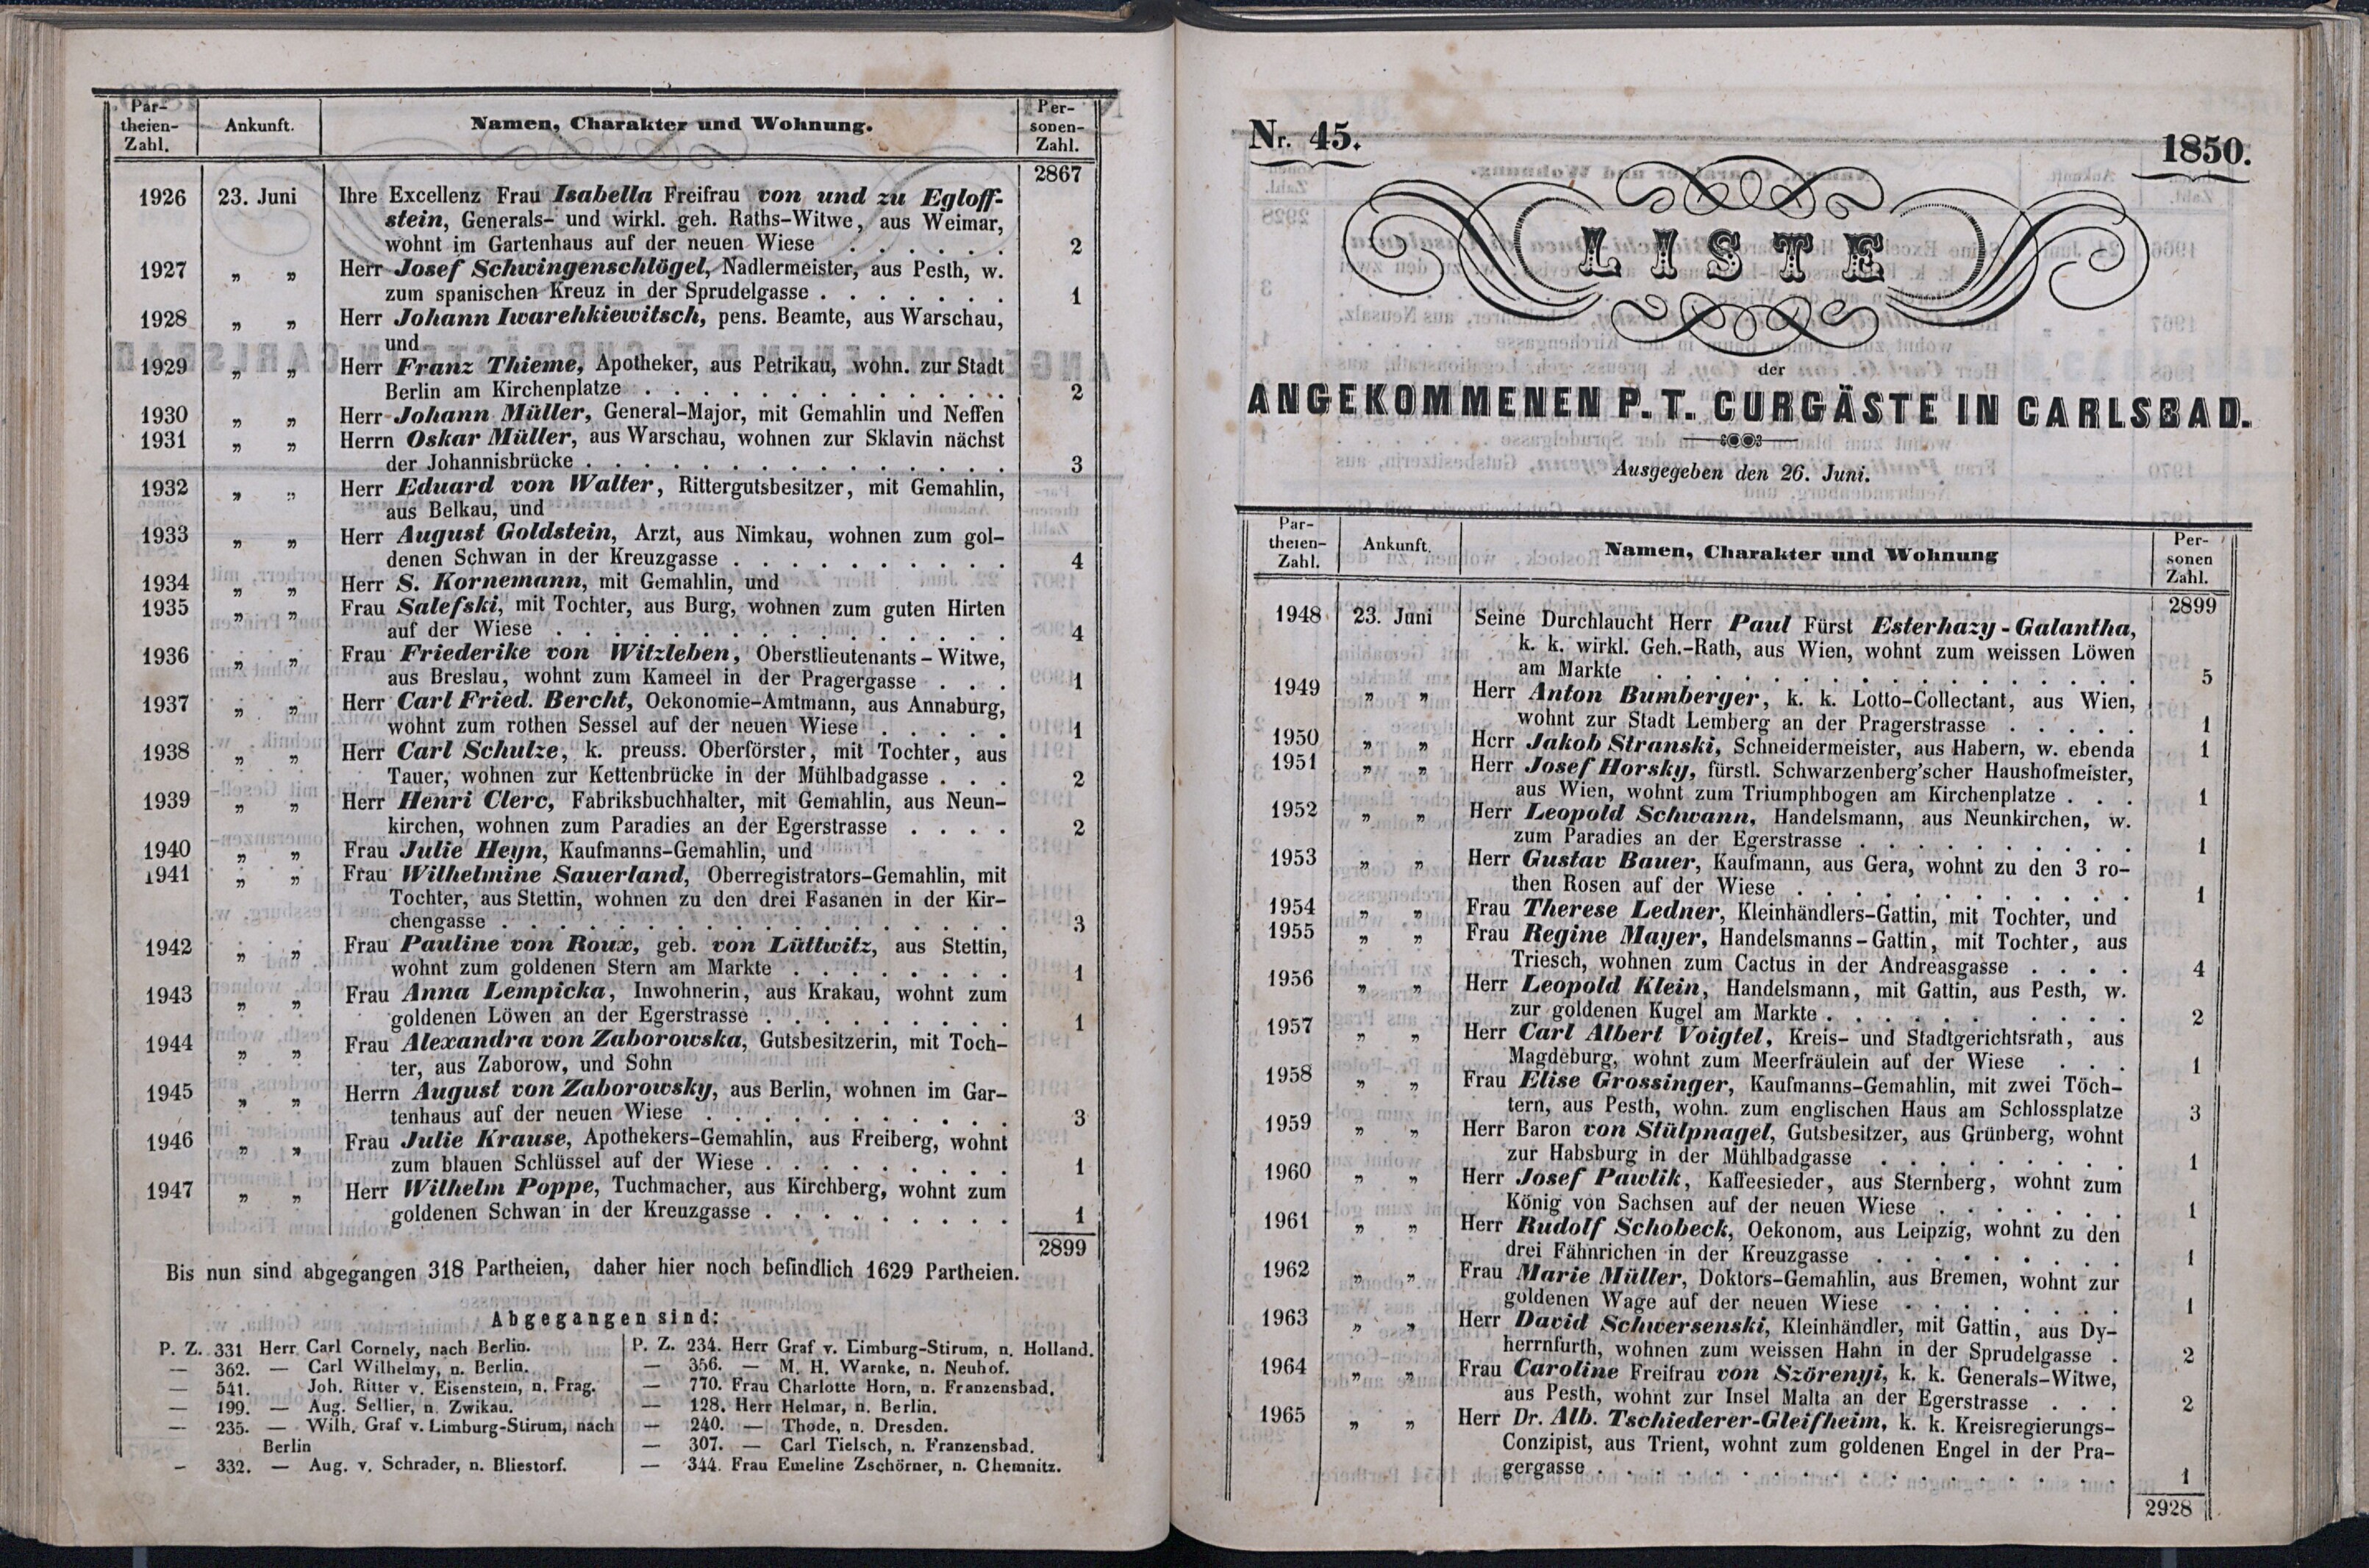 Par-
theien-
Zahl.
Ankunft.
Namen, Charakter und Wohnung.
Per-
sonen-
Zahl.
2867
1926 23. Juni Ihre Excellenz Frau Isabella Freifrau von und zu Egloff-
stein, Generals- und wirkl. geh. Raths-Witwe, aus Weimar,
wohnt im Gartenhaus auf der neuen Wiese . . . . . . 2
1927 „ „ Herr Josef Schwingenschlögel, Nadlermeister, aus Pesth, w.
zum spanischen Kreuz in der Sprudelgasse . . . . . . . 1
1928 „ „ Herr Johann Iwarehkiewitsch, pens. Beamte, aus Warschau,
und
1929 „ „ Herr Franz Thieme, Apotheker, aus Petrikau, wohn. zur Stadt
Berlin am Kirchenplatze . . . . . . . . . . . . . 2
1930 „ „ Herr Johann Müller, General-Major, mit Gemahlin und Neffen
1931 „ „ Herrn Oskar Müller, aus Warschau, wohnen zur Sklavin nächst
der Johannisbrücke . . . . . . . . . . . . . . . 3
1932 „ „ Herr Eduard von Walter, Rittergutsbesitzer, mit Gemahlin,
aus Belkau, und
1933 „ „ Herr August Goldstein, Arzt, aus Nimkau, wohnen zum gol-
denen Schwan in der Kreuzgasse . . . . . . . . . . 4
1934 „ „ Herr S. Kornemann, mit Gemahlin, und
1935 „ „ Frau Salefski, mit Tochter, aus Burg, wohnen zum guten Hirten
auf der Wiese . . . . . . . . . . . . . . . . 4
1936 „ „ Frau Friederike von Witzleben, Oberstlieutenants-Witwe,
aus Breslau, wohnt zum Kameel in der Pragergasse . . . 1
1937 „ „ Herr Carl Fried. Bercht, Oekonomie-Amtmann, aus Annaburg,
wohnt zum rothen Sessel auf der neuen Wiese . . . . . 1
1938 „ „ Herr Carl Schulze, k. preuss. Oberförster, mit Tochter, aus
Tauer, wohnen zur Kettenbrücke in der Mühlbadgasse . . . 2
1939 „ „ Herr Henri Clerc, Fabriksbuchhalter, mit Gemahlin, aus Neun-
kirchen, wohnen zum Paradies an der Egerstrasse . . . . 2
1940 „ „ Frau Julie Heyn, Kaufmanns-Gemahlin, und
1941 „ „ Frau Wilhelmine Sauerland, Oberregistrators-Gemahlin, mit
Tochter, aus Stettin, wohnen zu den drei Fasanen in der Kir-
chengasse . . . . . . . . . . . . . . . . . . 3
1942 „ „ Frau Pauline von Roux, geb. von Lüttwitz, aus Stettin,
wohnt zum goldenen Stern am Markte . . . . . . . . 1
1943 „ „ Frau Anna Lempicka, Inwohnerin, aus Krakau, wohnt zum
goldenen Löwen an der Egerstrasse . . . . . . . . . 1
1944 „ „ Frau Alexandra von Zaborowska, Gutsbesitzerin, mit Toch-
ter, aus Zaborow, und Sohn
1945 „ „ Herrn August von Zaborowsky, aus Berlin, wohnen im Gar-
tenhaus auf der neuen Wiese . . . . . . . . . . . 3
1946 „ „ Frau Julie Krause, Apothekers-Gemahlin, aus Freiberg, wohnt
zum blauen Schlüssel auf der Wiese . . . . . . . . . 1
1947 „ „ Herr Wilhelm Poppe, Tuchmacher, aus Kirchberg, wohnt zum
goldenen Schwan in der Kreuzgasse . . . . . . . . . 1
2899
Bis nun sind abgegangen 318 Partheien, daher hier noch befindlich 1629 Partheien.
Abgegangen sind:
P. Z. 331 Herr Carl Cornely, nach Berlin.
— 362. — Carl Wilhelmy, n. Berlin.
— 541. Joh. Ritter v. Eisenstein, n. Prag.
— 199. — Aug. Sellier, n. Zwikau.
— 235. — Wilh. Graf v. Limburg-Stirum, nach
Berlin
— 332. — Aug. v. Schrader, n. Bliestorf.
P. Z. 234. Herr Graf v. Limburg-Stirum, n. Holland.
— 356. — M. H. Warnke, n. Neuhof.
— 770. Frau Charlotte Horn, n. Franzensbad.
— 128. Herr Helmar, n. Berlin.
— 240. — Thode, n. Dresden.
— 307. — Carl Tielsch, n. Franzensbad.
— 344. Frau Emeline Zschörner, n. Chemnitz.
Nr. 45.
1850.
LISTE
der
ANGEKOMMENEN P. T. CURGÄSTE IN CARLSBAD.
Ausgegeben den 26. Juni.
Par-
theien-
Zahl.
Ankunft.
Namen, Charakter und Wohnung
Per-
sonen
Zahl.
2899
1948 23. Juni Seine Durchlaucht Herr Paul Fürst Esterhazy-Galantha,
k. k. wirkl. Geh.-Rath, aus Wien, wohnt zum weissen Löwen
am Markte . . . . . . . . . . . . . . . . . 5
1949 „ „ Herr Anton Bumberger, k. k. Lotto-Collectant, aus Wien,
wohnt zur Stadt Lemberg an der Pragerstrasse . . . . . 1
1950 „ „ Herr Jakob Stranski, Schneidermeister, aus Habern, w. ebenda 1
1951 „ „ Herr Josef Horsky, fürstl. Schwarzenberg'scher Haushofmeister,
aus Wien, wohnt zum Triumphbogen am Kirchenplatze . . . 1
1952 „ „ Herr Leopold Schwann, Handelsmann, aus Neunkirchen, w.
zum Paradies an der Egerstrasse . . . . . . . . . . 1
1953 „ „ Herr Gustav Bauer, Kaufmann, aus Gera, wohnt zu den 3 ro-
then Rosen auf der Wiese . . . . . . . . . . . . 1
1954 „ „ Frau Therese Ledner, Kleinhändlers-Gattin, mit Tochter, und
1955 „ „ Frau Regine Mayer, Handelsmanns-Gattin, mit Tochter, aus
Triesch, wohnen zum Cactus in der Andreasgasse . . . . 4
1956 „ „ Herr Leopold Klein, Handelsmann, mit Gattin, aus Pesth, w.
zur goldenen Kugel am Markte . . . . . . . . . . . 2
1957 „ „ Herr Carl Albert Voigtel, Kreis- und Stadtgerichtsrath, aus
Magdeburg, wohnt zum Meerfräulein auf der Wiese . . . 1
1958 „ „ Frau Elise Grossinger, Kaufmanns-Gemahlin, mit zwei Töch-
tern, aus Pesth, wohn. zum englischen Haus am Schlossplatze 3
1959 „ „ Herr Baron von Stülpnagel, Gutsbesitzer, aus Grünberg, wohnt
zur Habsburg in der Mühlbadgasse . . . . . . . . . 1
1960 „ „ Herr Josef Pawlik, Kaffeesieder, aus Sternberg, wohnt zum
König von Sachsen auf der neuen Wiese . . . . . . . 1
1961 „ „ Herr Rudolf Schobeck, Oekonom, aus Leipzig, wohnt zu den
drei Fähnrichen in der Kreuzgasse . . . . . . . . . 1
1962 „ „ Frau Marie Müller, Doktors-Gemahlin, aus Bremen, wohnt zur
goldenen Wage auf der neuen Wiese . . . . . . . . 1
1963 „ „ Herr David Schwersenski, Kleinhändler, mit Gattin, aus Dy-
herrnfurth, wohnen zum weissen Hahn in der Sprudelgasse . 2
1964 „ „ Frau Caroline Freifrau von Szörenyi, k. k. Generals-Witwe,
aus Pesth, wohnt zur Insel Malta an der Egerstrasse . . . 2
1965 „ „ Herr Dr. Alb. Tschiederer-Gleifheim, k. k. Kreisregierungs-
Conzipist, aus Trient, wohnt zum goldenen Engel in der Pra-
gergasse . . . . . . . . . . . . . . . . . . 1
2928